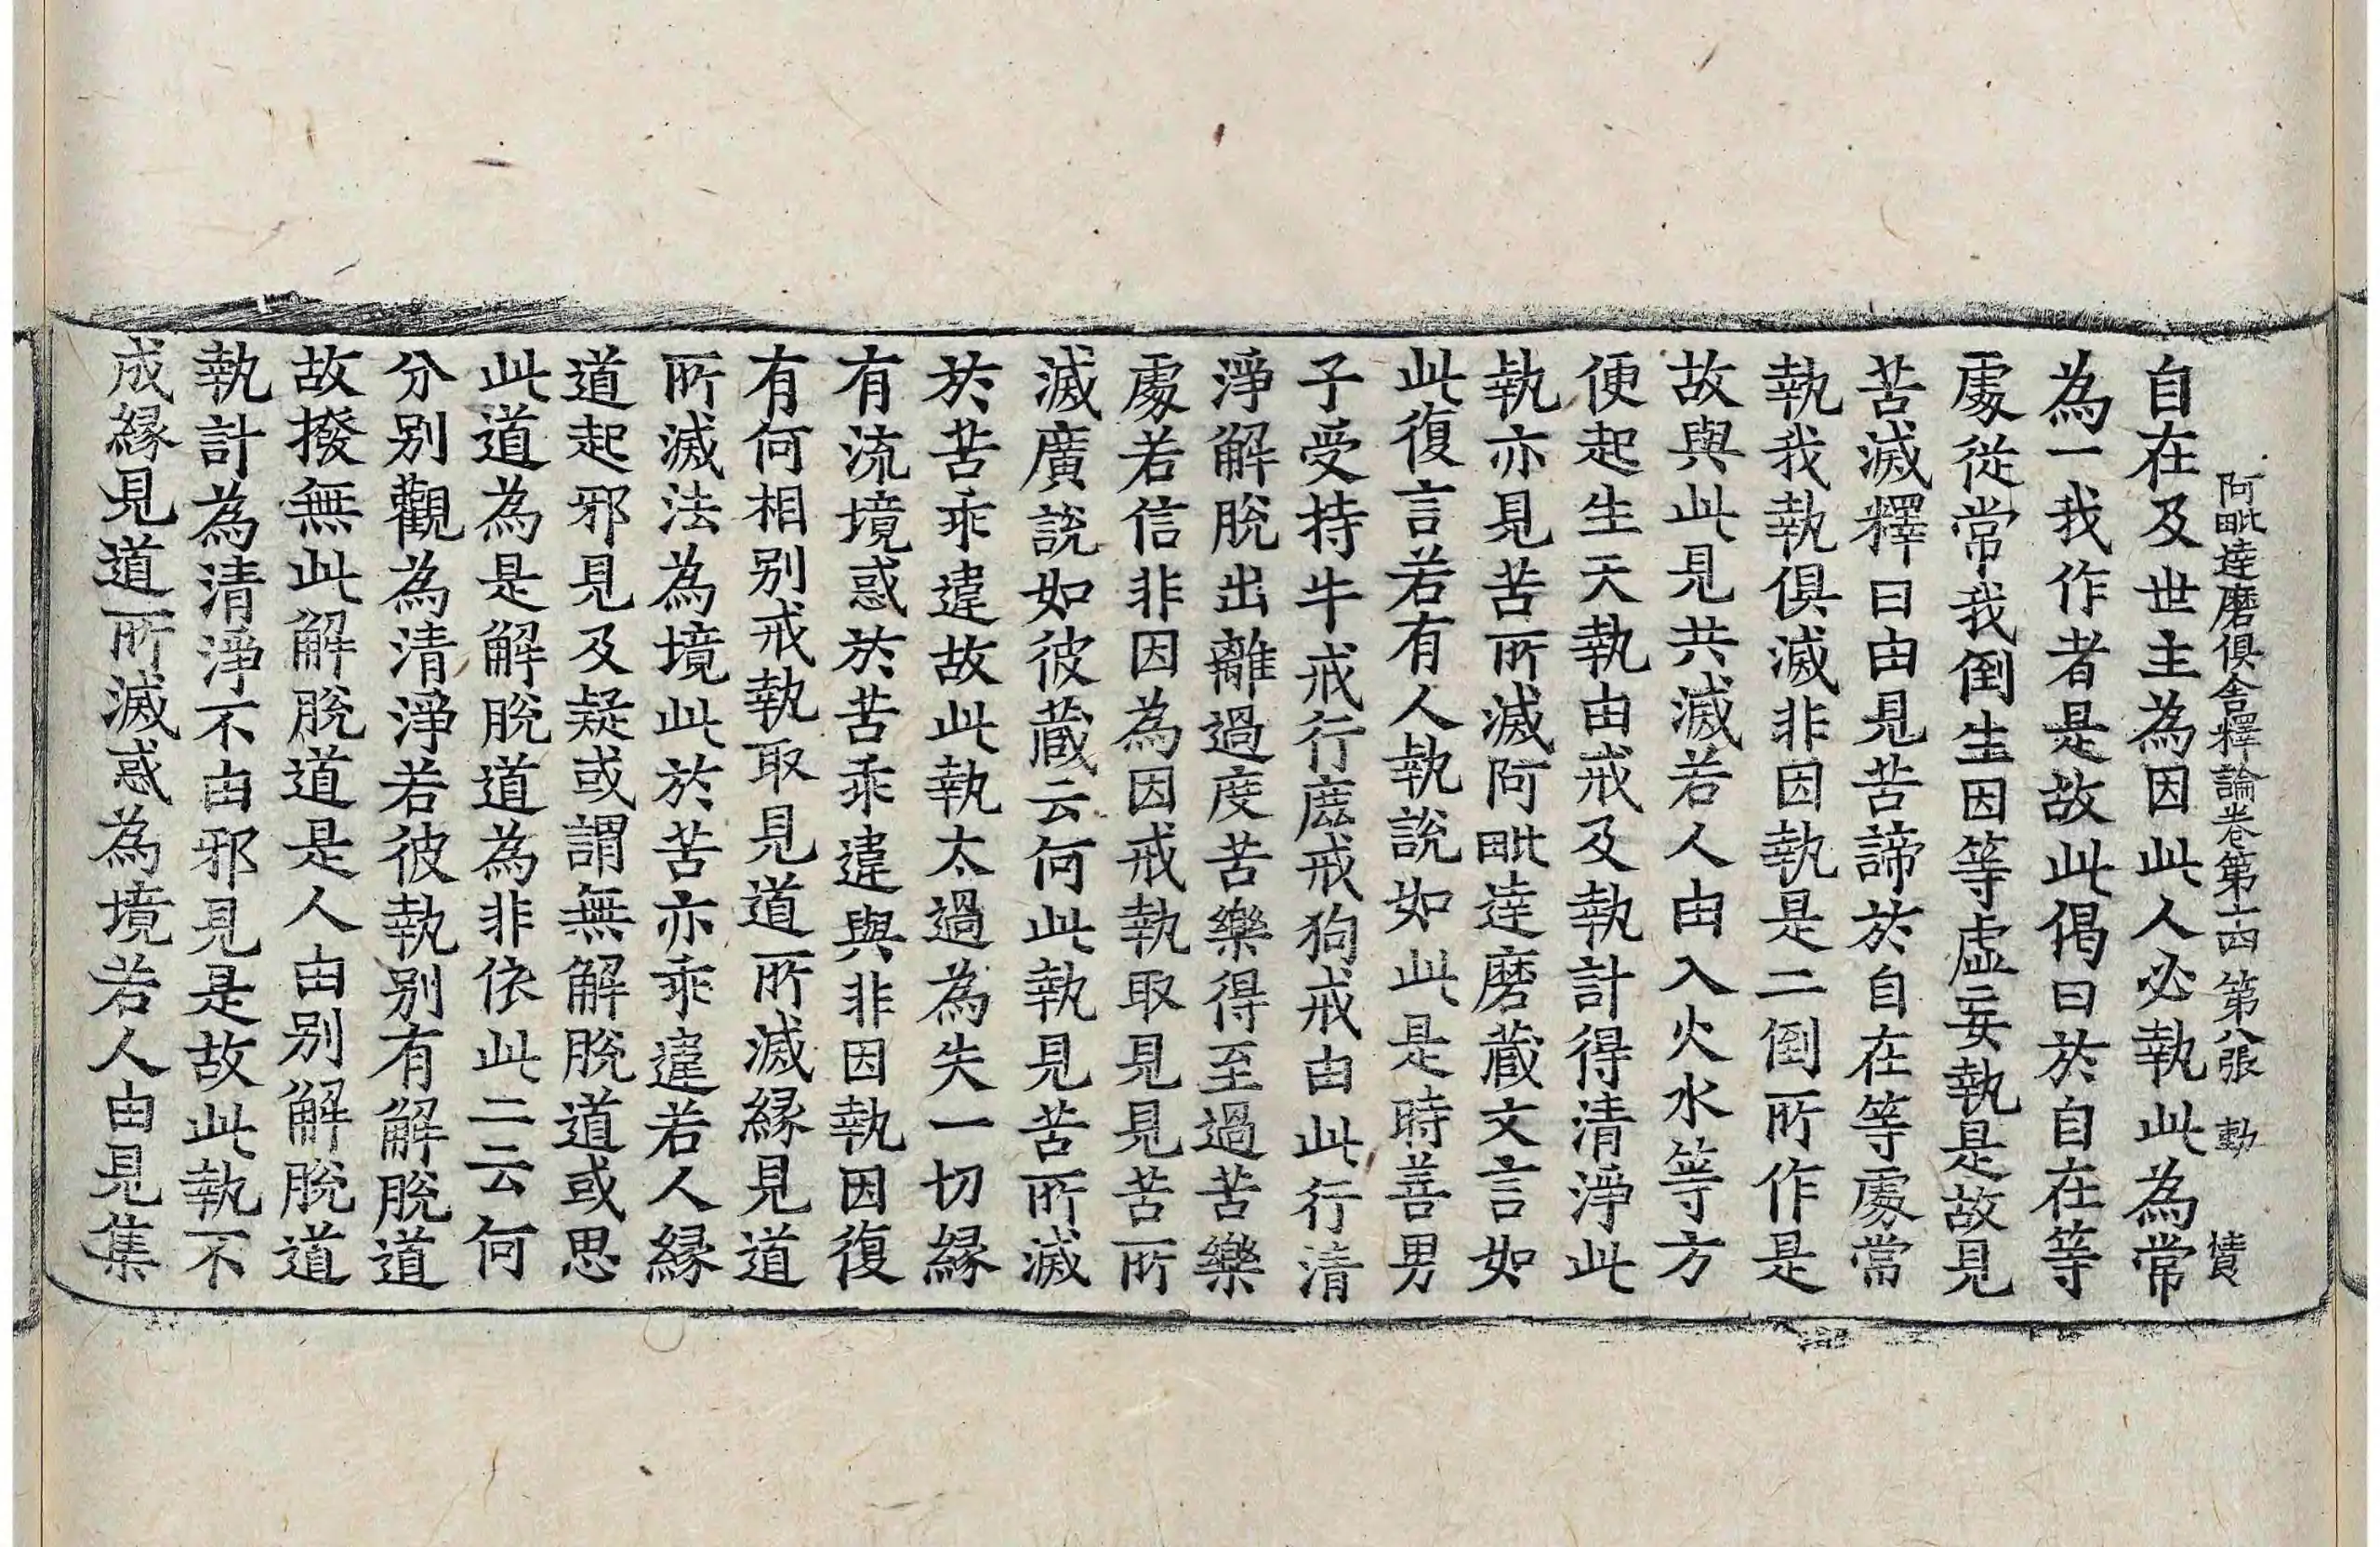 阿毗達磨俱舍釋論卷第十四 第八張 動 憒
自在及世主為因此人必執此為常
為一我作者是故此偈曰於自在等
處從常我倒生因等虛妄執是故見
苦滅釋曰由見苦諦於自在等處常
執我執俱滅非因執是二倒所作是
故與此見共滅若人由入火水等方
便起生天執由戒及執計得清淨此
執亦見苦所滅阿毗達磨藏文言如
此復言若有人執說如此是時善男
子受持牛戒行麁戒狗戒由此行清
淨解脫出離過度苦樂得至過苦樂
處若信非因為因戒執取見見苦所
滅廣說如彼藏云何此執見苦所滅
於苦乖違故此執太過為失一切緣
有流境惑於苦乖違與非因執因復
有何相別戒執取見道所滅緣見道
所滅法為境此於苦亦乖違若人緣
道起邪見及疑或謂無解脫道或思
此道為是解脫道為非依此二云何
分別觀為清淨若彼執別有解脫道
故撥無此解脫道是人由別解脫道
執計為清淨不由邪見是故此執不
成緣見道所滅惑為境若人由見集